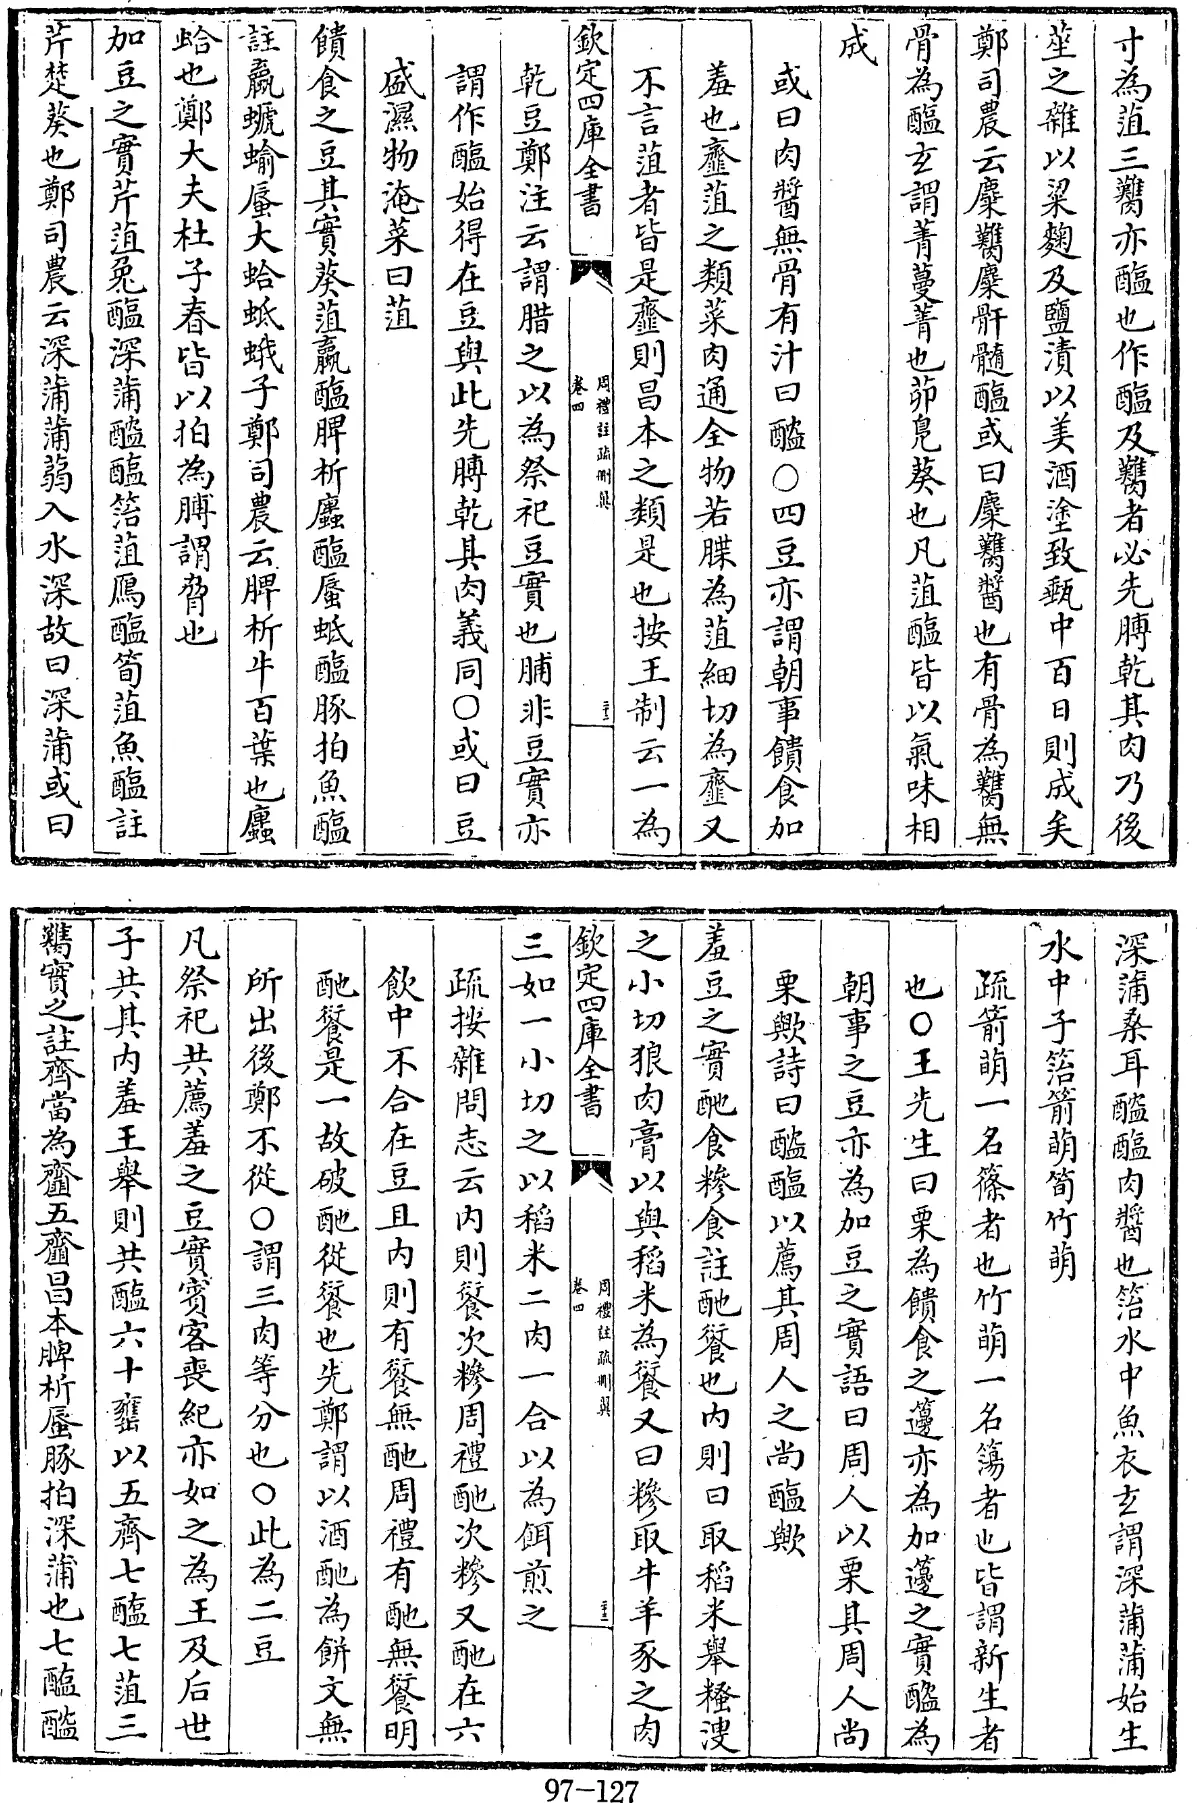 寸為菹三臡亦醢也作醢及臡者必先膊乾其肉乃後
莝之雜以粱麴及鹽漬以美酒塗致甀中百日則成矣
鄭司農云麋臡麋骭髓醢或曰麋臡醬也有骨為臡無
骨為醢玄謂菁蔓菁也茆鳧葵也凡菹醢皆以氣味相
成
或曰肉醬無骨有汁曰醓○四豆亦謂朝事饋食加
羞也齏菹之類菜肉通全物若䐑為菹細切為齏又
不言菹者皆是齏則昌本之類是也按王制云一為
欽定四庫全書
周禮註疏刪翼
卷四
乾豆鄭注云謂腊之以為祭祀豆實也脯非豆實亦
謂作醢始得在豆與此先膊乾其肉義同○或曰豆
盛濕物淹菜曰菹
饋食之豆其實葵菹蠃醢脾析蠯醢蜃蚳醢豚拍魚醢
註蠃螔蝓蜃大蛤蚳蛾子鄭司農云脾析牛百葉也蠯
蛤也鄭大夫杜子春皆以拍為膊謂脅也
加豆之實芹菹兔醢深蒲醓醢箈菹鴈醢筍菹魚醢註
芹楚葵也鄭司農云深蒲蒲蒻入水深故曰深蒲或曰
深蒲桑耳醓醢肉醬也箈水中魚衣玄謂深蒲蒲始生
水中子箈箭萌筍竹萌
疏箭萌一名篠者也竹萌一名簜者也皆謂新生者
也○王先生曰栗為饋食之籩亦為加籩之實醓為
朝事之豆亦為加豆之實語曰周人以栗其周人尚
栗歟詩曰醓醢以薦其周人之尚醢歟
羞豆之實酏食糝食註酏䬾也内則曰取稻米舉糔溲
之小切狼肉膏以與稻米為䬾又曰糝取牛羊豕之肉
欽定四庫全書
周禮註疏刪翼
卷四
三如一小切之以稻米二肉一合以為餌煎之
疏按雜問志云内則䬾次糝周禮酏次糝又酏在六
飲中不合在豆且内則有䬾無酏周禮有酏無䬾明
酏䬾是一故破酏從䬾也先鄭謂以酒酏為餅文無
所出後鄭不從○謂三肉等分也○此為二豆
凡祭祀共薦羞之豆實賓客喪紀亦如之為王及后世
子共其内羞王舉則共醢六十罋以五齊七醢七菹三
臡實之註齊當為齏五齏昌本脾析蜃豚拍深蒲也七醢醓
97-127